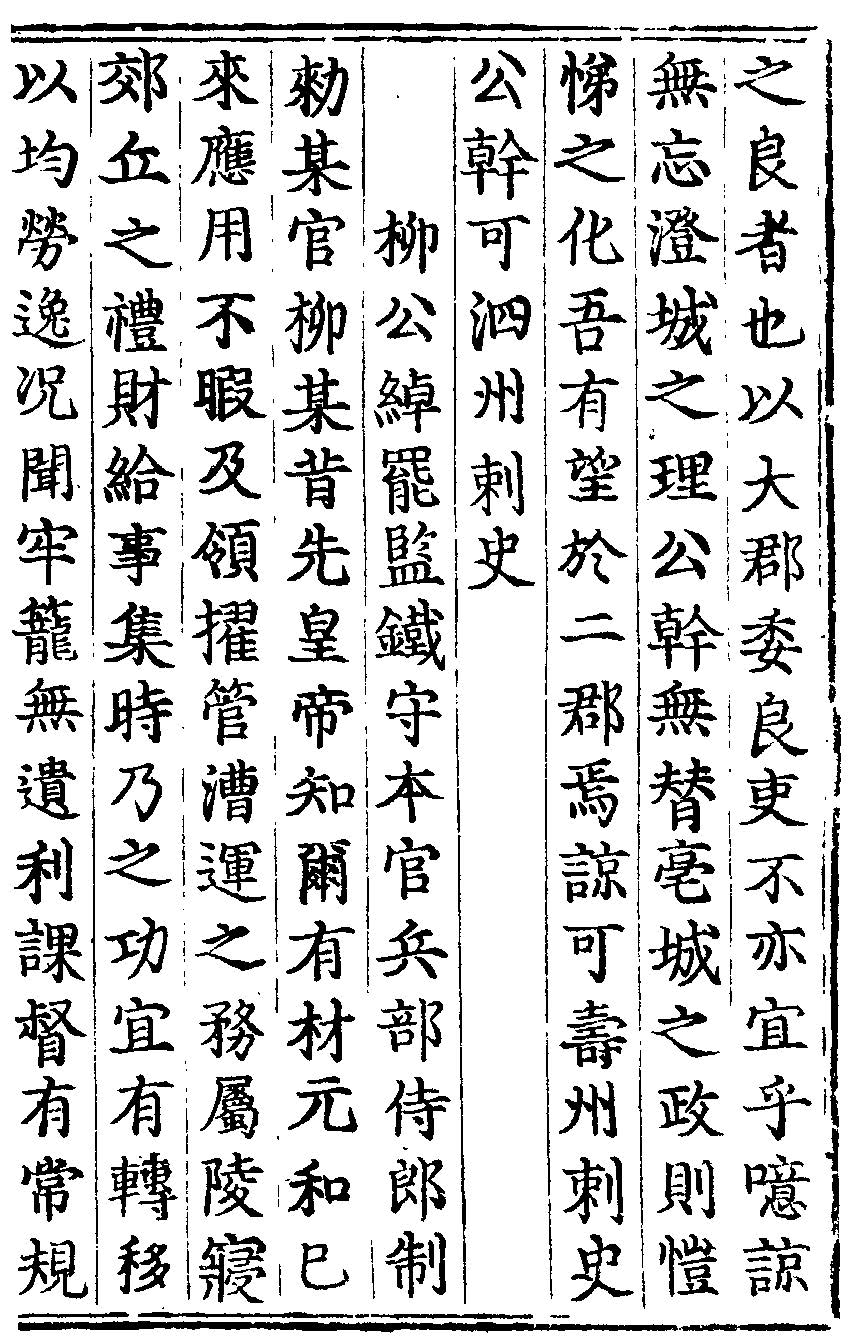 之良者也以大郡委良吏不亦宜乎噫諒
無忘澄城之理公幹無替亳城之政則愷
悌之化吾有望於二郡焉諒可壽州刺史
公幹可泗州刺史
柳公綽罷監鐵守本官兵部侍郎制
勑某官柳某昔先皇帝知爾有材元和已
來應用不暇及領擢管漕運之務屬陵寢
郊丘之禮財給事集時乃之功宜有轉移
以均勞逸况聞牢籠無遺利課督有常規